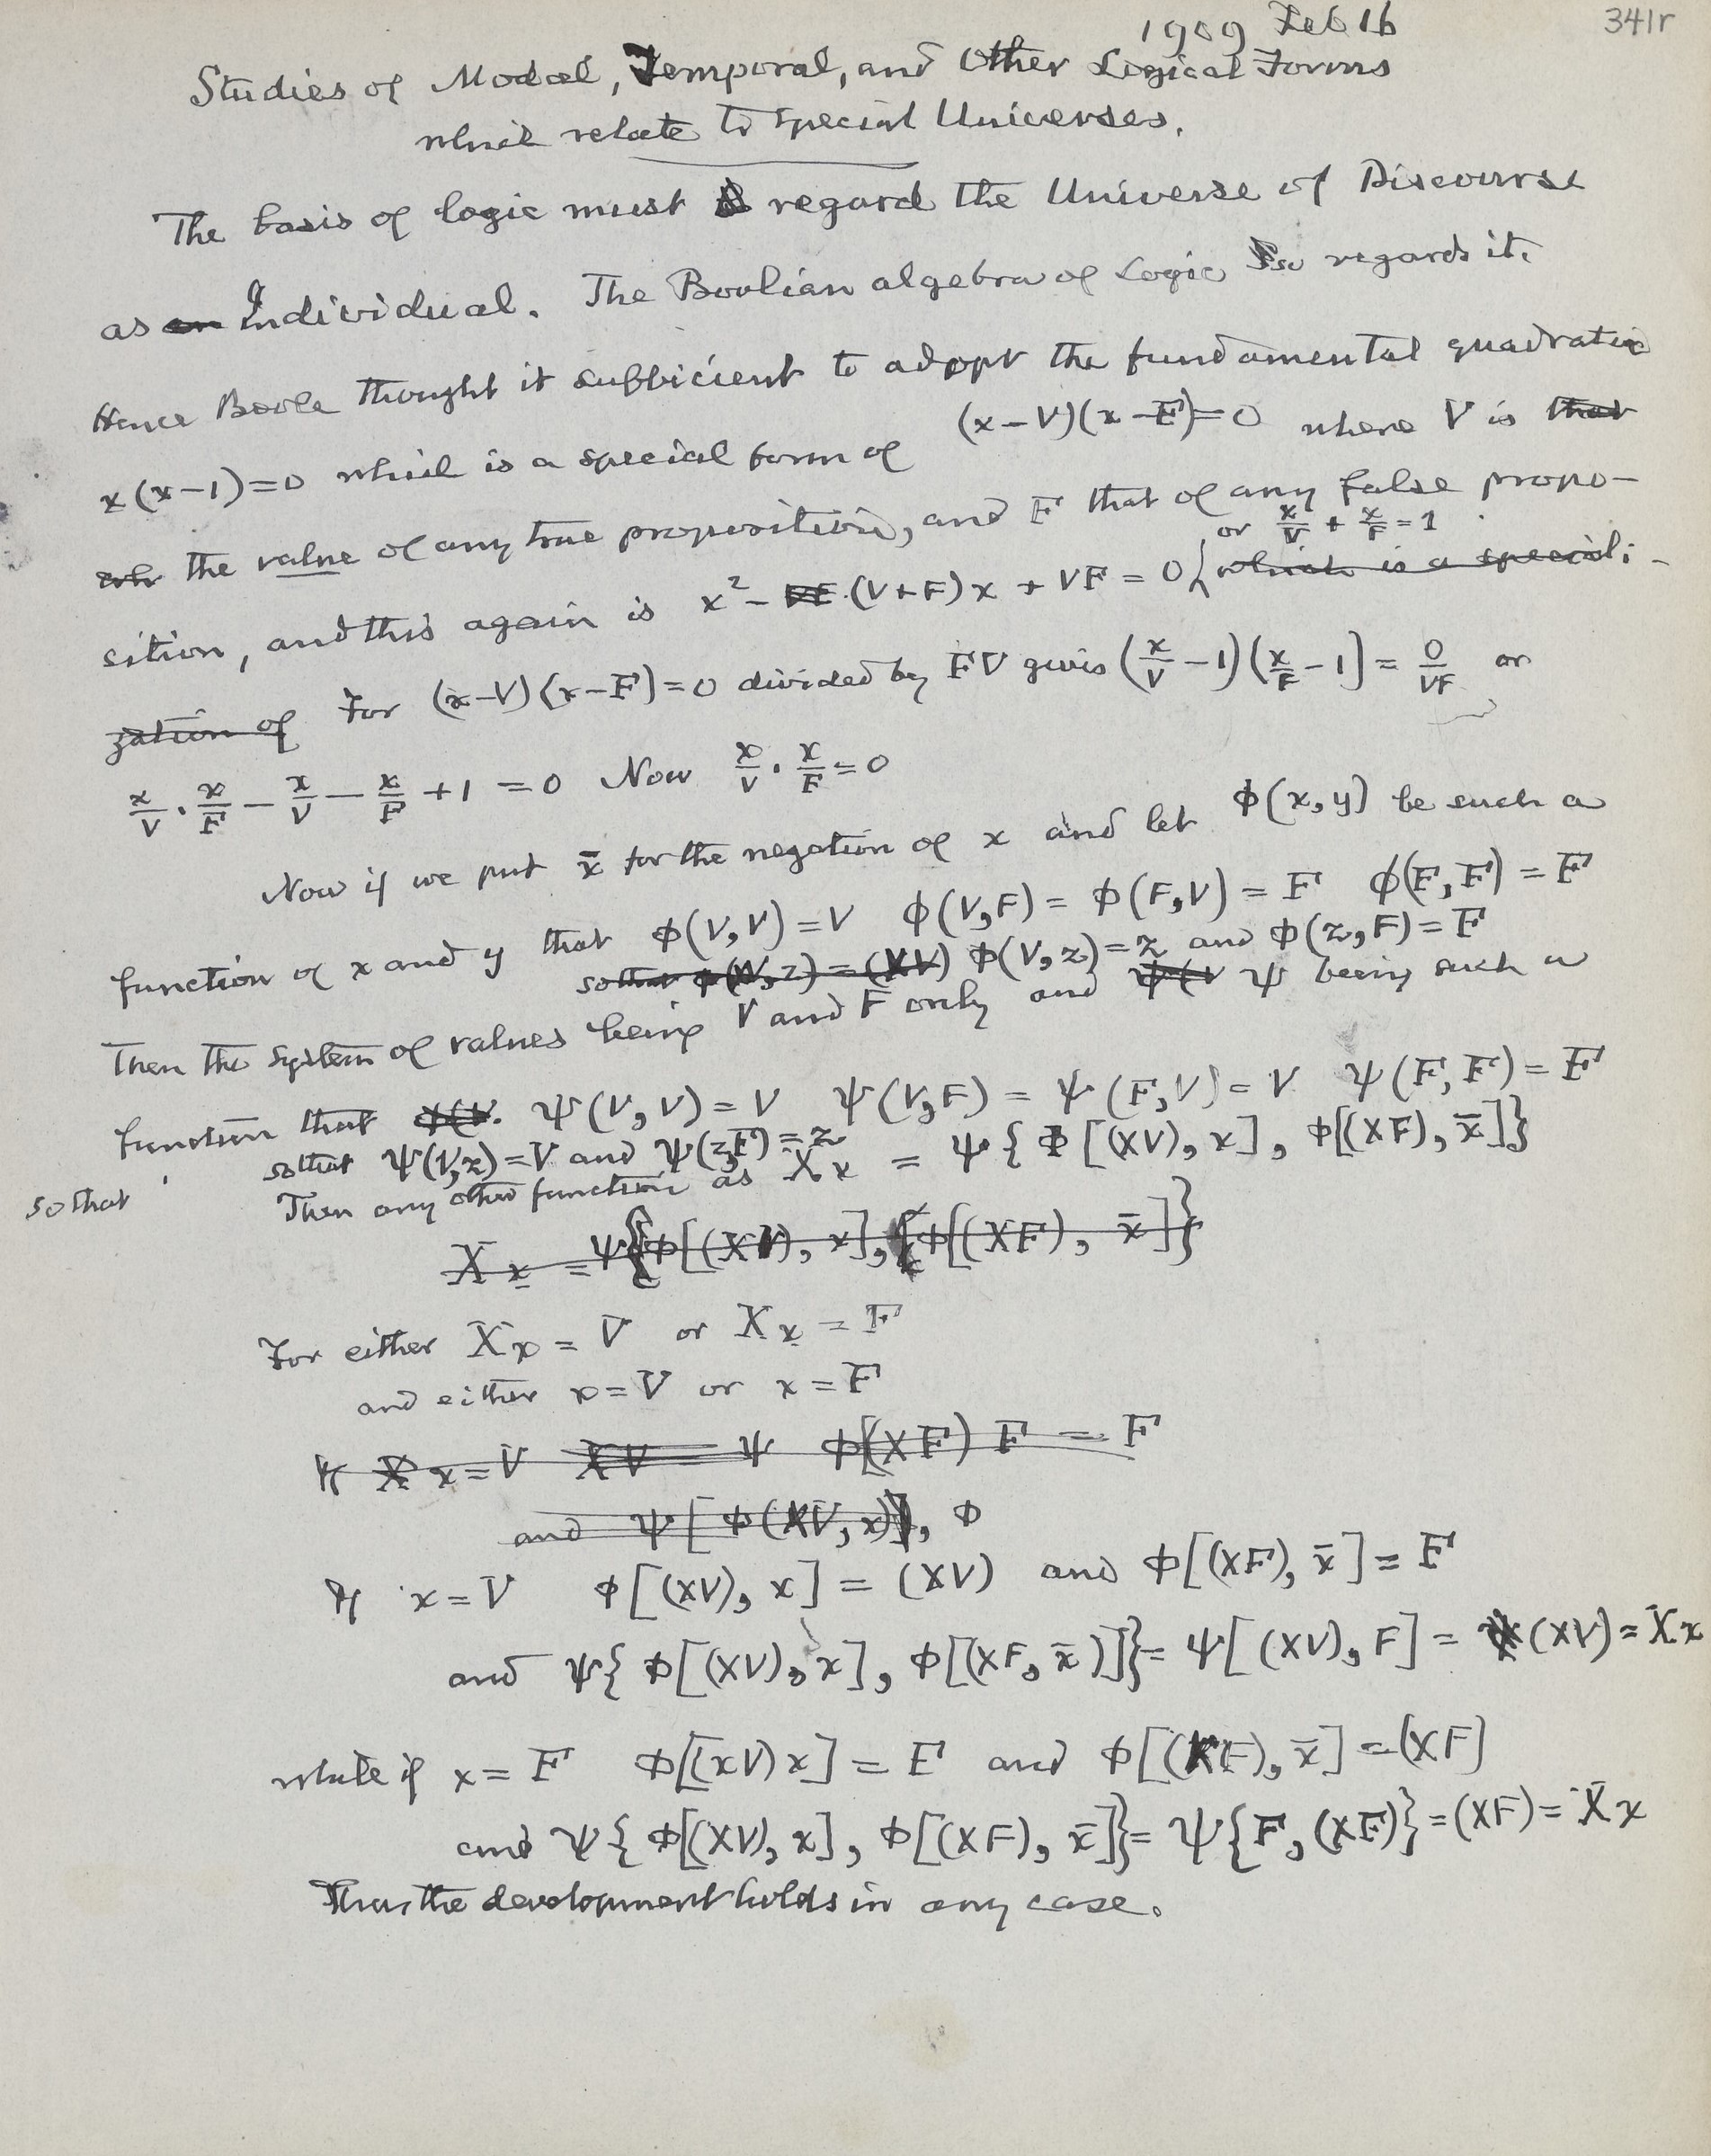 1909 Feb 16
341r
Studies of Modal, Temporal, and Other Logical Forms
which relate to special Universes.
The basis of logic must regard the Universe of Discourse
as an Individual. The Boolian algebra of Logic so regards it.
Hence Boole thought it sufficient to adopt the fundamental quadratic
x(x−1)=0 which is a special form of (x−V)(x−F)=0 where V is that
the value of any true proposition, and F that of any false propo-
or x/V + x/F = 1
sition, and this again is x² − (V+F)x + VF = 0 { which is a speciali-
zation of For (x−V)(x−F)=0 divided by FV gives (x/V − 1)(x/F − 1) = 0/VF or
x/V · x/F − x/V − x/F + 1 = 0 Now x/V · x/F = 0
Now if we put x̄ for the negation of x and let ϕ(x,y) be such a
function of x and y that ϕ(V,V)=V ϕ(V,F) = ϕ(F,V) = F ϕ(F,F) = F
so that ϕ(V,z) = (XV) ϕ(V,z)=z and ϕ(z,F)=F
Then the system of values being V and F only and ϕ(V ψ being such a
function that ϕ(V. ψ(V,V) = V ψ(V,F) = ψ(F,V) = V ψ(F,F) = F
so that ψ(V,z)=V and ψ(z,F)=z
so that
Then any other function as Xx = ψ{ϕ[(XV), x], ϕ[(XF), x̄]}
Xx = ψ{ϕ[(XV), x], {ϕ[(XF), x̄]}
For either Xx = V or Xx = F
and either x=V or x=F
If X x=V XV = ψ ϕ[(XF) F = F
and ψ[ϕ(XV, x)], ϕ
If x=V ϕ[(XV), x] = (XV) and ϕ[(XF), x̄] = F
and ψ{ϕ[(XV), x], ϕ[(XF, x̄)]} = ψ[(XV), F] = (XV) = Xx
while if x = F ϕ[(XV) x] = F and ϕ[(XF), x̄] = (XF)
and ψ{ϕ[(XV), x], ϕ[(XF), x̄]} = ψ{F, (XF)} = (XF) = Xx
Thus the development holds in any case.